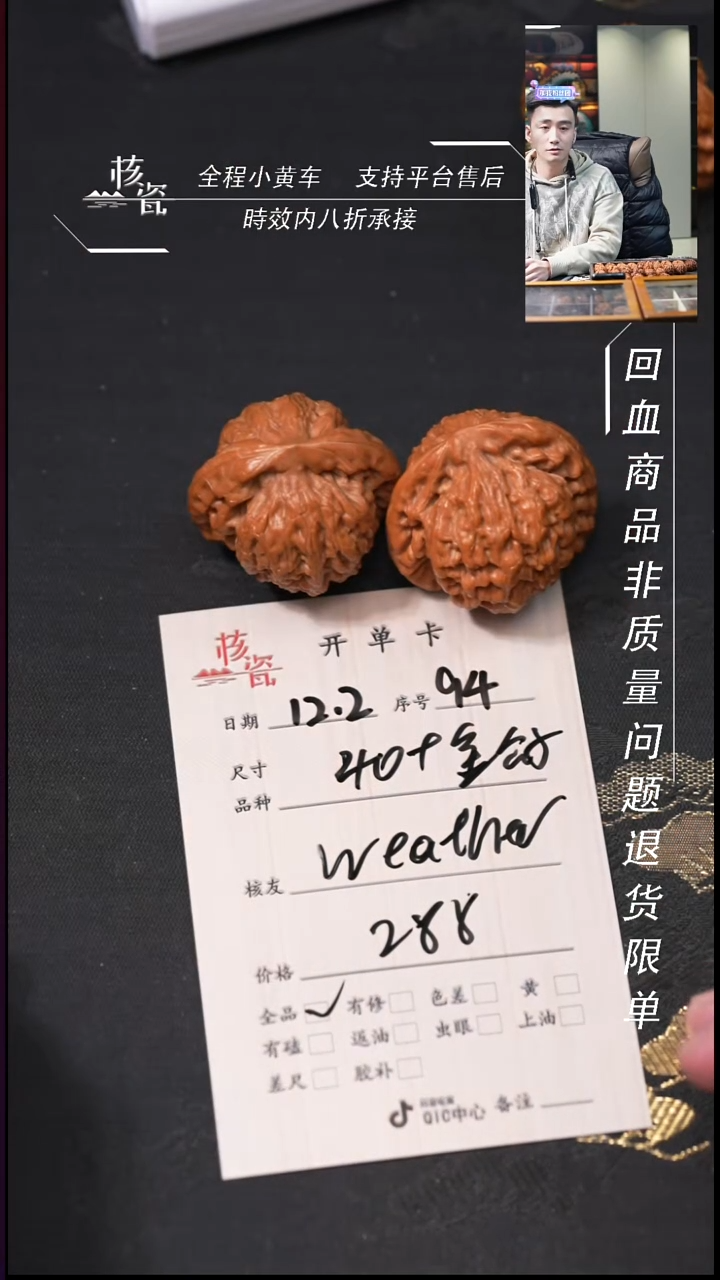 核瓷
全程小黄车 支持平台售后
時效内八折承接
回血商品非质量问题退货限单
核瓷
开单卡
日期 12.2 序号 94
尺寸 40+
品种
核友 Weather
价格 288
全品 ✓ 有修 色差 黄
有磕 返油 虫眼 上油
差尺 胶补
QIC中心 备注